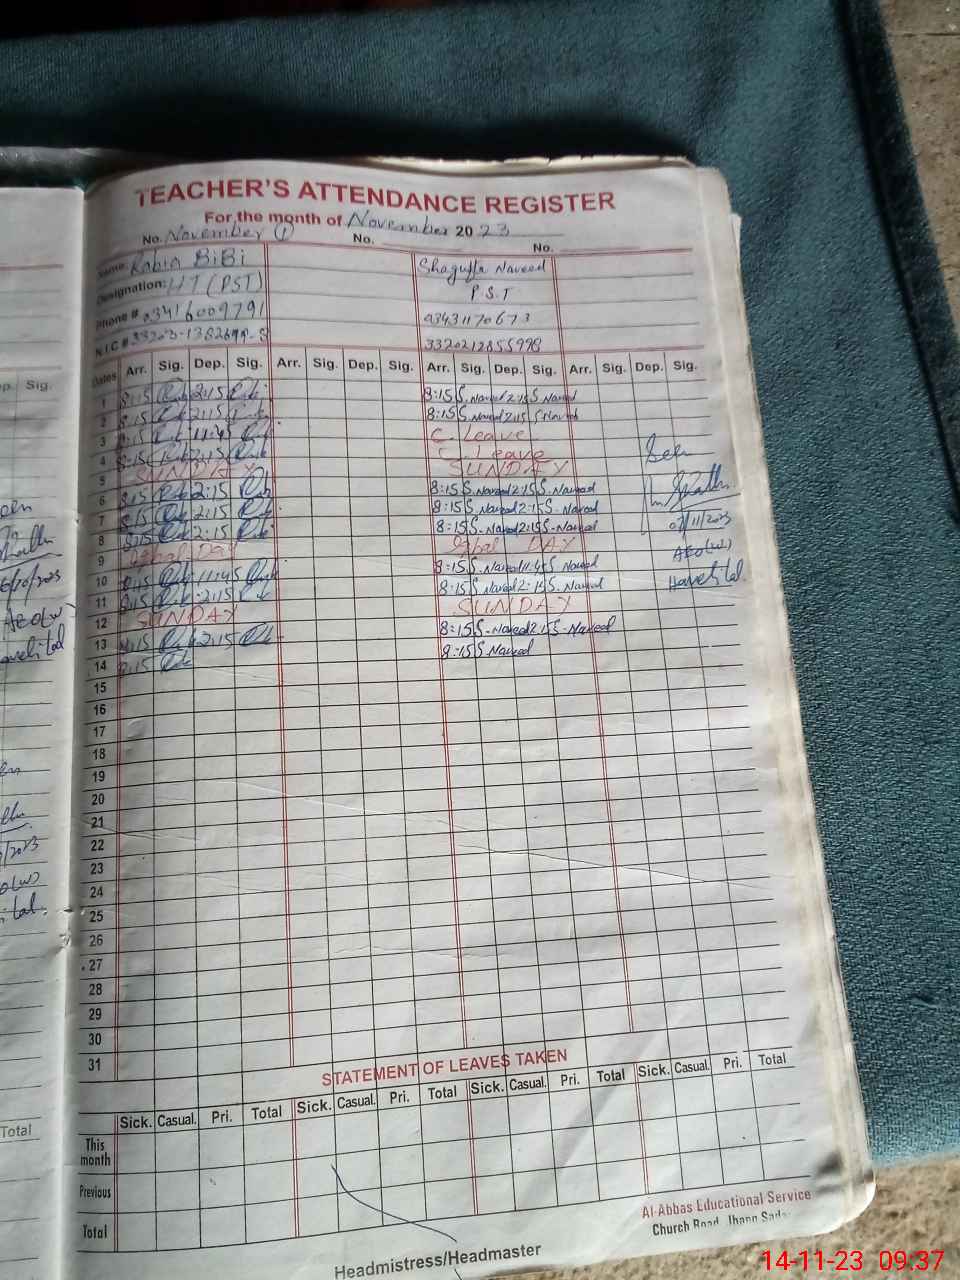 TEACHER'S ATTENDANCE REGISTER
For the month of November 2023
No. November 1 No. No.
Name: Rabia BiBi Shagufta Naveed
Designation: HT (PST) P.S.T
Phone # 03416009791 03431170673
N.I.C # 3320212855998
Dates Arr. Sig. Dep. Sig. Arr. Sig. Dep. Sig. Arr. Sig. Dep. Sig. Arr. Sig. Dep. Sig.
1 8:15 2:15 8:15 S.Naveed 2:15 S Naveed
2 8:15 2:15 8:15 S.Naveed 2:15 S Naveed
3 8:15 11:45 C. Leave
4 8:15 2:15 C. Leave Seen
5 SUNDAY SUNDAY
6 8:15 2:15 8:15 S.Naveed 2:15 S.Naveed
7 8:15 2:15 8:15 S.Naveed 2:15 S.Naveed
8 8:15 2:15 8:15 S.Naveed 2:15 S.Naveed
9 Iqbal Day Iqbal DAY AEO(W)
10 8:15 11:45 8:15 S.Naveed 11:45 S Naveed
11 8:15 2:15 8:15 S Naveed 2:15 S. Naveed
12 SUNDAY SUNDAY
13 8:15 2:15 8:15 S.Naveed 2:15 S.Naveed
14 8:15 8:15 S Naveed
15
16
17
18
19
20
21
22
23
24
25
26
27
28
29
30
31
STATEMENT OF LEAVES TAKEN
Sick. Casual. Pri. Total Sick. Casual. Pri. Total Sick. Casual. Pri. Total Sick. Casual. Pri. Total
This month
Previous
Total
Al-Abbas Educational Service
Church Road, Jhang
Headmistress/Headmaster
Sig.
AEO(W)
Total
14-11-23 09.37